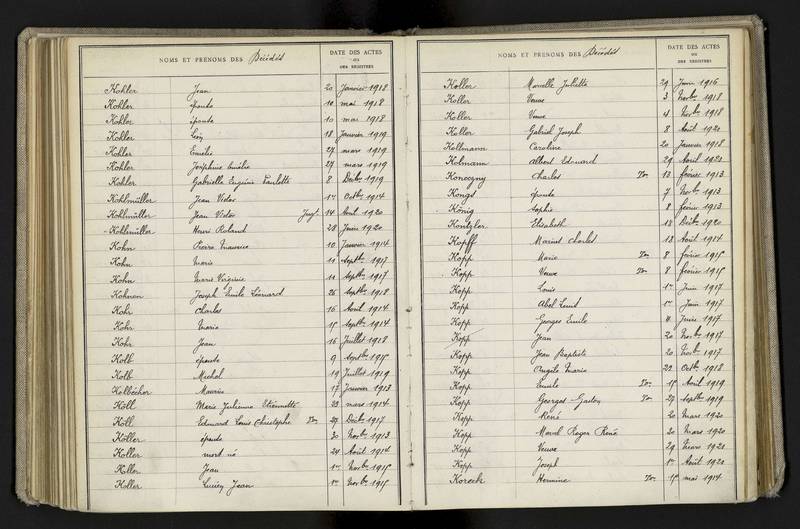 NOMS ET PRÉNOMS DES Décédés
DATE DES ACTES
OU
DES REGISTRES
Kohler Jean 20 Janvier 1918
Kohler épouse 10 mai 1918
Kohler épouse 10 mai 1918
Kohler Léon 18 Janvier 1919
Kohler Emélie 27 mars 1919
Kohler Joséphine Amélie 27 mars 1919
Kohler Gabrielle Eugénie Paulette 8 Décbre 1919
Kohlmüller Jean Victor 1er Octbre 1914
Kohlmüller Jean Victor Jugt. 14 Avril 1920
Kohlmüller Henri Roland 28 Juin 1920
Kohn Pierre Maurice 10 Janvier 1914
Kohn Marie 11 Septbre 1917
Kohn Marie Virginie 11 Septbre 1917
Kohnen Joseph Emile Léonard 26 Septbre 1918
Kohr Charles 16 Avril 1914
Kohr Marie 15 Septbre 1914
Kohr Jean 16 Juillet 1918
Kolb épouse 9 Septbre 1915
Kolb Michel 19 Juillet 1919
Kolbécher Maurice 17 Janvier 1913
Köll Marie Julienne Etiennette 23 mars 1914
Köll Edmond Louis Christophe Ton 29 Décbre 1917
Köller épouse 30 Novbre 1913
Koller mort né 24 Août 1914
Koller Jean 1er Novbre 1915
Koller Lucien Jean 1er Novbre 1915
NOMS ET PRÉNOMS DES Décédés
DATE DES ACTES
OU
DES REGISTRES
Koller Marcelle Juliette 29 Juin 1916
Koller Veuve 3 Novbre 1918
Koller Veuve 4 Novbre 1918
Koller Gabriel Joseph 8 Août 1920
Kollmann Caroline 20 Janvier 1918
Kolmann Albert Edouard 29 Avril 1920
Koneczny Charles Ton 13 février 1913
Kongs épouse 7 Novbre 1913
König Sophie 8 février 1913
Kontzler Elisabeth 18 Décbre 1920
Kopff Marius Charles 13 Août 1914
Kopp Marie Ton 8 février 1915
Kopp Veuve Ton 8 février 1915
Kopp Louis 1er Juin 1917
Kopp Abel 1er Juin 1917
Kopp Georges Emile 4 1917
Kopp Jean 20 Novbre 1917
Kopp Jean Baptiste 20 Novbre 1917
Kopp Angèle Marie 22 Octbre 1918
Kopp Emile Ton 15 Avril 1919
Kopp Georges Gaston Ton 29 Septbre 1919
Kopp René 20 Mars 1920
Kopp Marcel Roger René 20 Mars 1920
Kopp Veuve 29 Mars 1920
Kopp Joseph 1er Août 1920
Koreck Hermine Ton 15 mai 1914